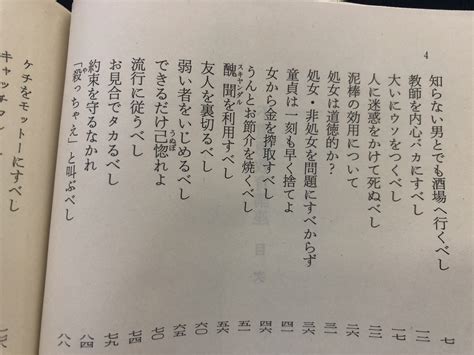 4
知らない男とでも酒場へ行くべし 七
教師を内心バカにすべし
大いにウソをつくべし
人に迷惑をかけて死ぬべし
泥棒の効用について
処女は道徳的か?
処女・非処女を問題にすべからず 三六
童貞は一刻も早く捨てよ 四一
女から金を搾取すべし 四六
うんとお節介を焼くべし 五一
醜聞を利用すべし 五六
スキャンダル
友人を裏切るべし 六〇
弱い者をいじめるべし 六五
できるだけ己惚れよ 七〇
うぬぼ
流行に従うべし 七五
お見合でタカるべし 七九
約束を守るなかれ 八四
「殺っちゃえ」と叫ぶべし 八八
や
ケチをモットーにすべし